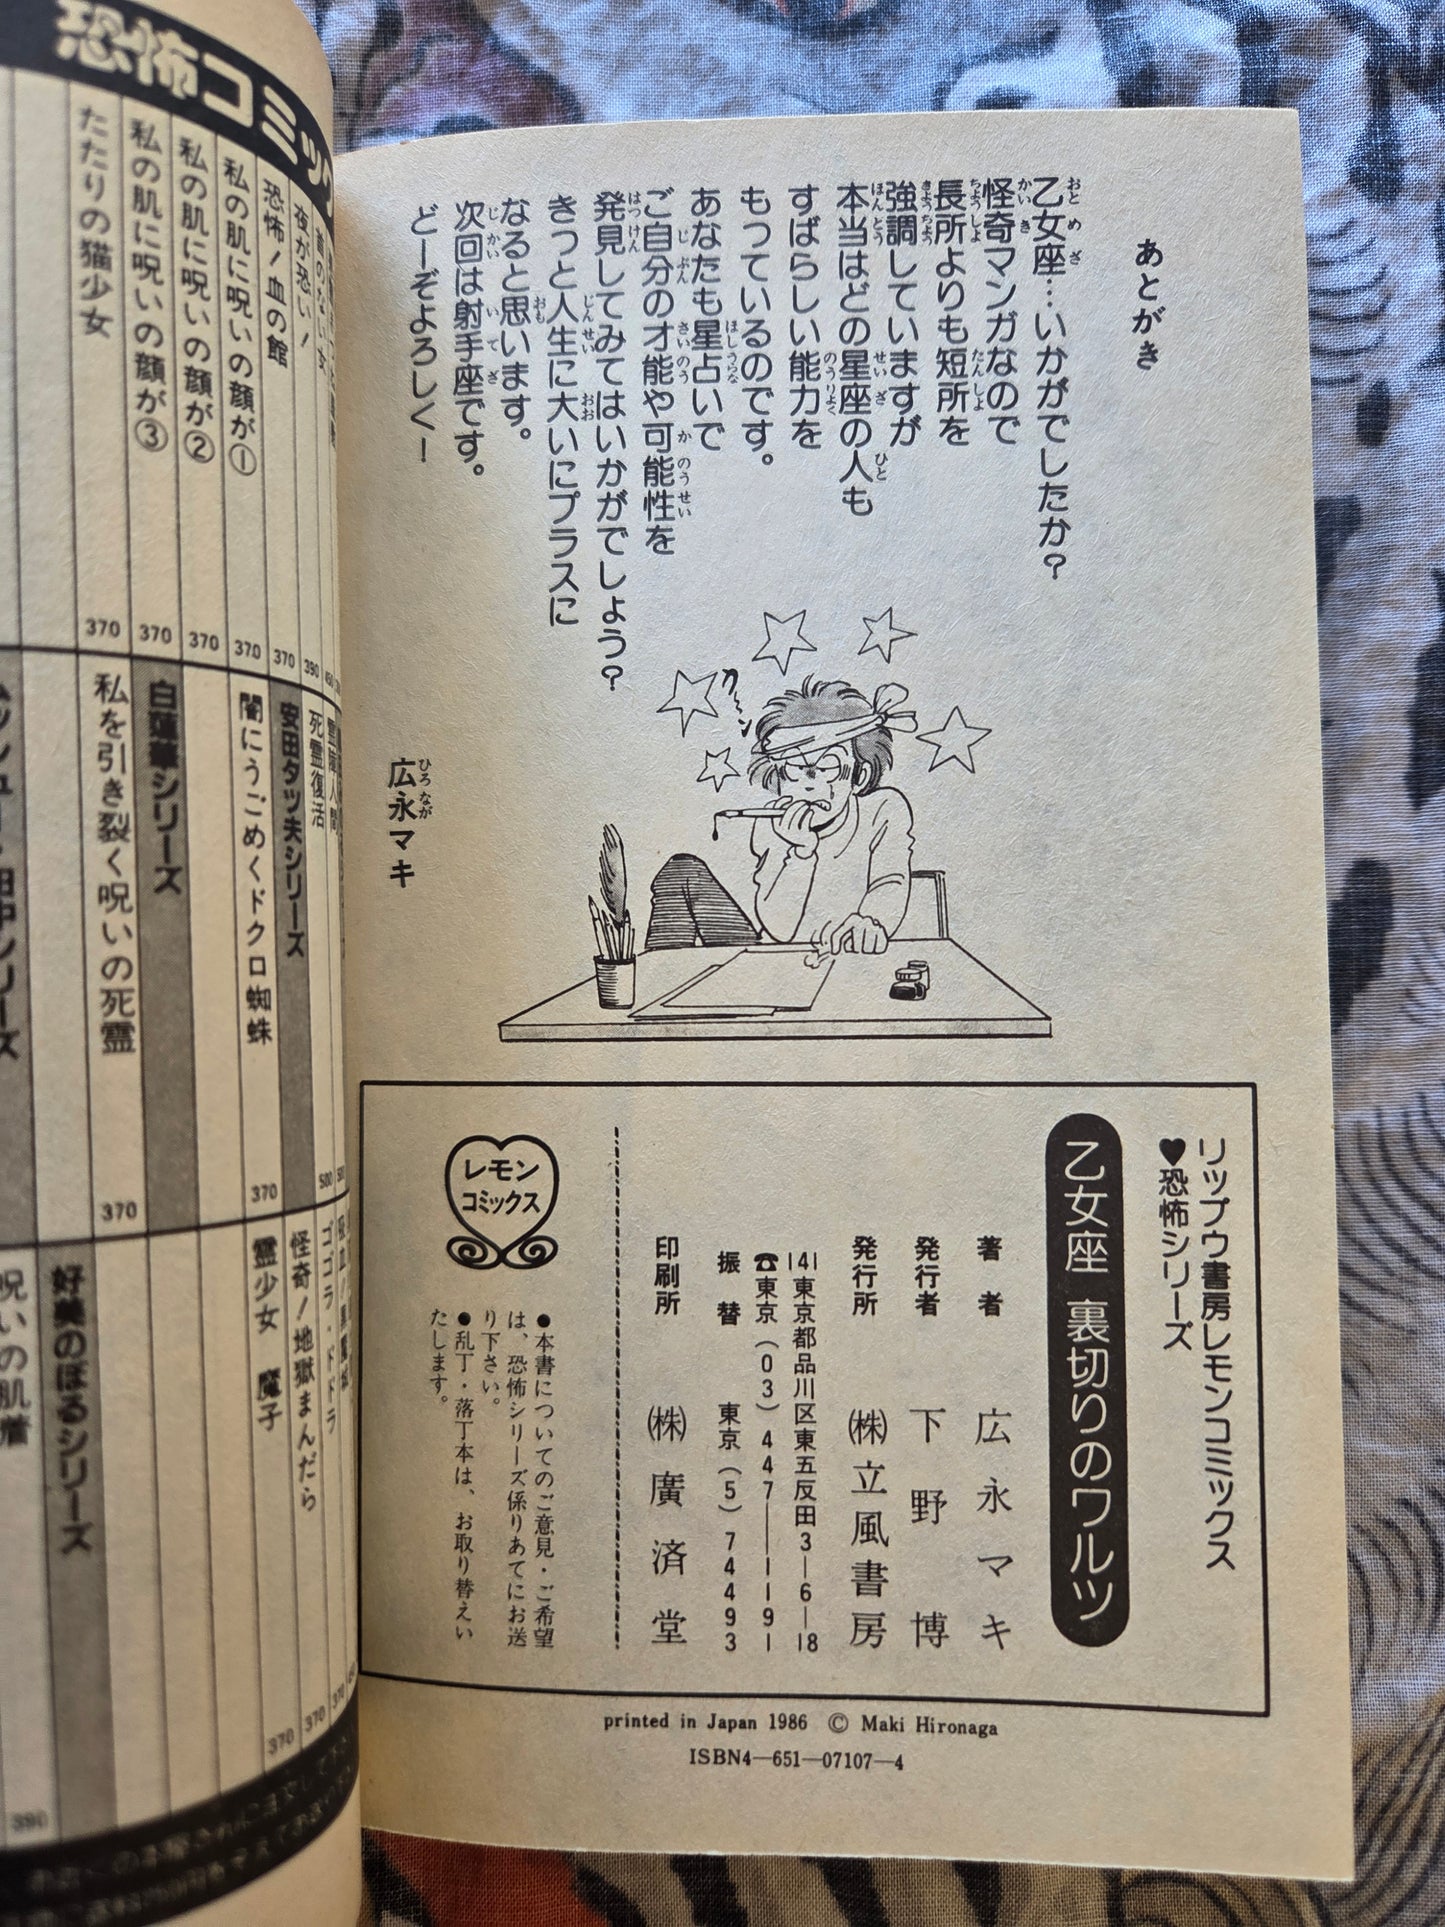 あとがき
乙女座…いかがでしたか?
怪奇マンガなので
長所よりも短所を
強調していますが
本当はどの星座の人も
すばらしい能力を
もっているのです。
あなたも星占いで
ご自分の才能や可能性を
発見してみてはいかがでしょう?
きっと人生に大いにプラスに
なると思います。
次回は射手座です。
どーぞよろしく!
広永マキ
リップウ書房レモンコミックス
♥恐怖シリーズ
乙女座 裏切りのワルツ
著者 広永マキ
発行者 下野博
発行所 ㈱立風書房
141東京都品川区東五反田3―6―18
☎東京(03)447―1191
振替 東京(5)74493
印刷所 ㈱廣済堂
レモン
コミックス
●本書についてのご意見・ご希望
は、恐怖シリーズ係りあてにお送
り下さい。
●乱丁・落丁本は、お取り替えい
たします。
printed in Japan 1986 © Maki Hironaga
ISBN4―651―07107―4
恐怖コミック
夜が恐い!
390
恐怖!血の館
370
私の肌に呪いの顔が①
370
私の肌に呪いの顔が②
370
私の肌に呪いの顔が③
370
たたりの猫少女
370
死霊復活
500
安田タツ夫シリーズ
闇にうごめくドクロ蜘蛛
370
白蓮華シリーズ
私を引き裂く呪いの死霊
370
ゴゴラ・ドドラ
370
怪奇!地獄まんだら
370
霊少女 魔子
370
好美のぼるシリーズ
呪いの肌着
390